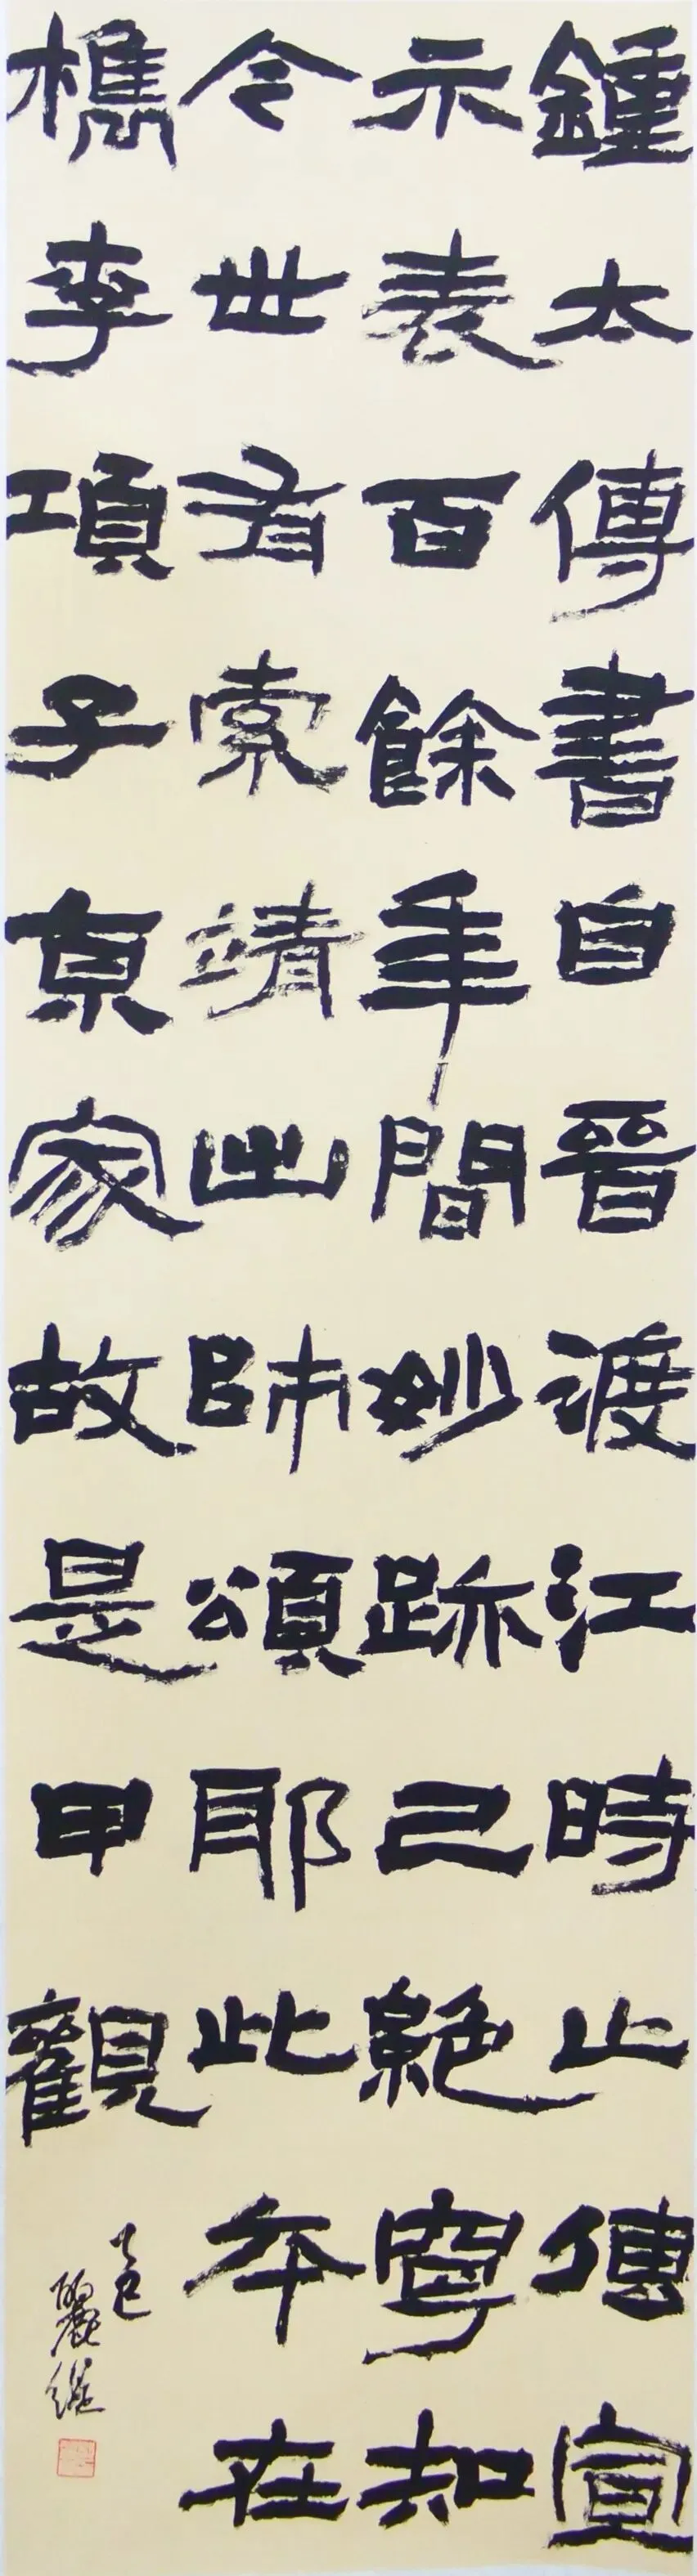 鍾太傅書自晉渡江時止傳宣
示表百餘年間妙跡已絕寧知
今世有索靖出師頌耶此本在
檇李項子京家故是甲觀
乙巳